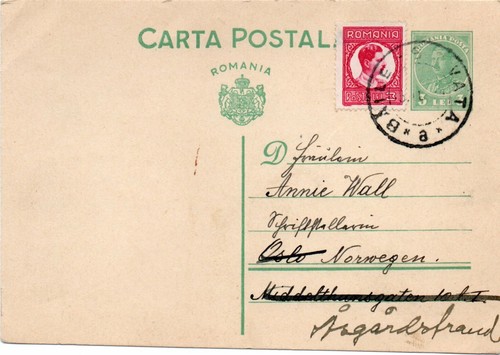 CARTA POSTALA
ROMANIA
ROMANIA
ROMANIA POSTA
3 LEI 3
BAILE VATA
* a *
D Fräulein
Annie Wall
Schriftstellerin
Oslo Norwegen.
Middelthunsgaten 10 k. I.
Åsgårdstrand